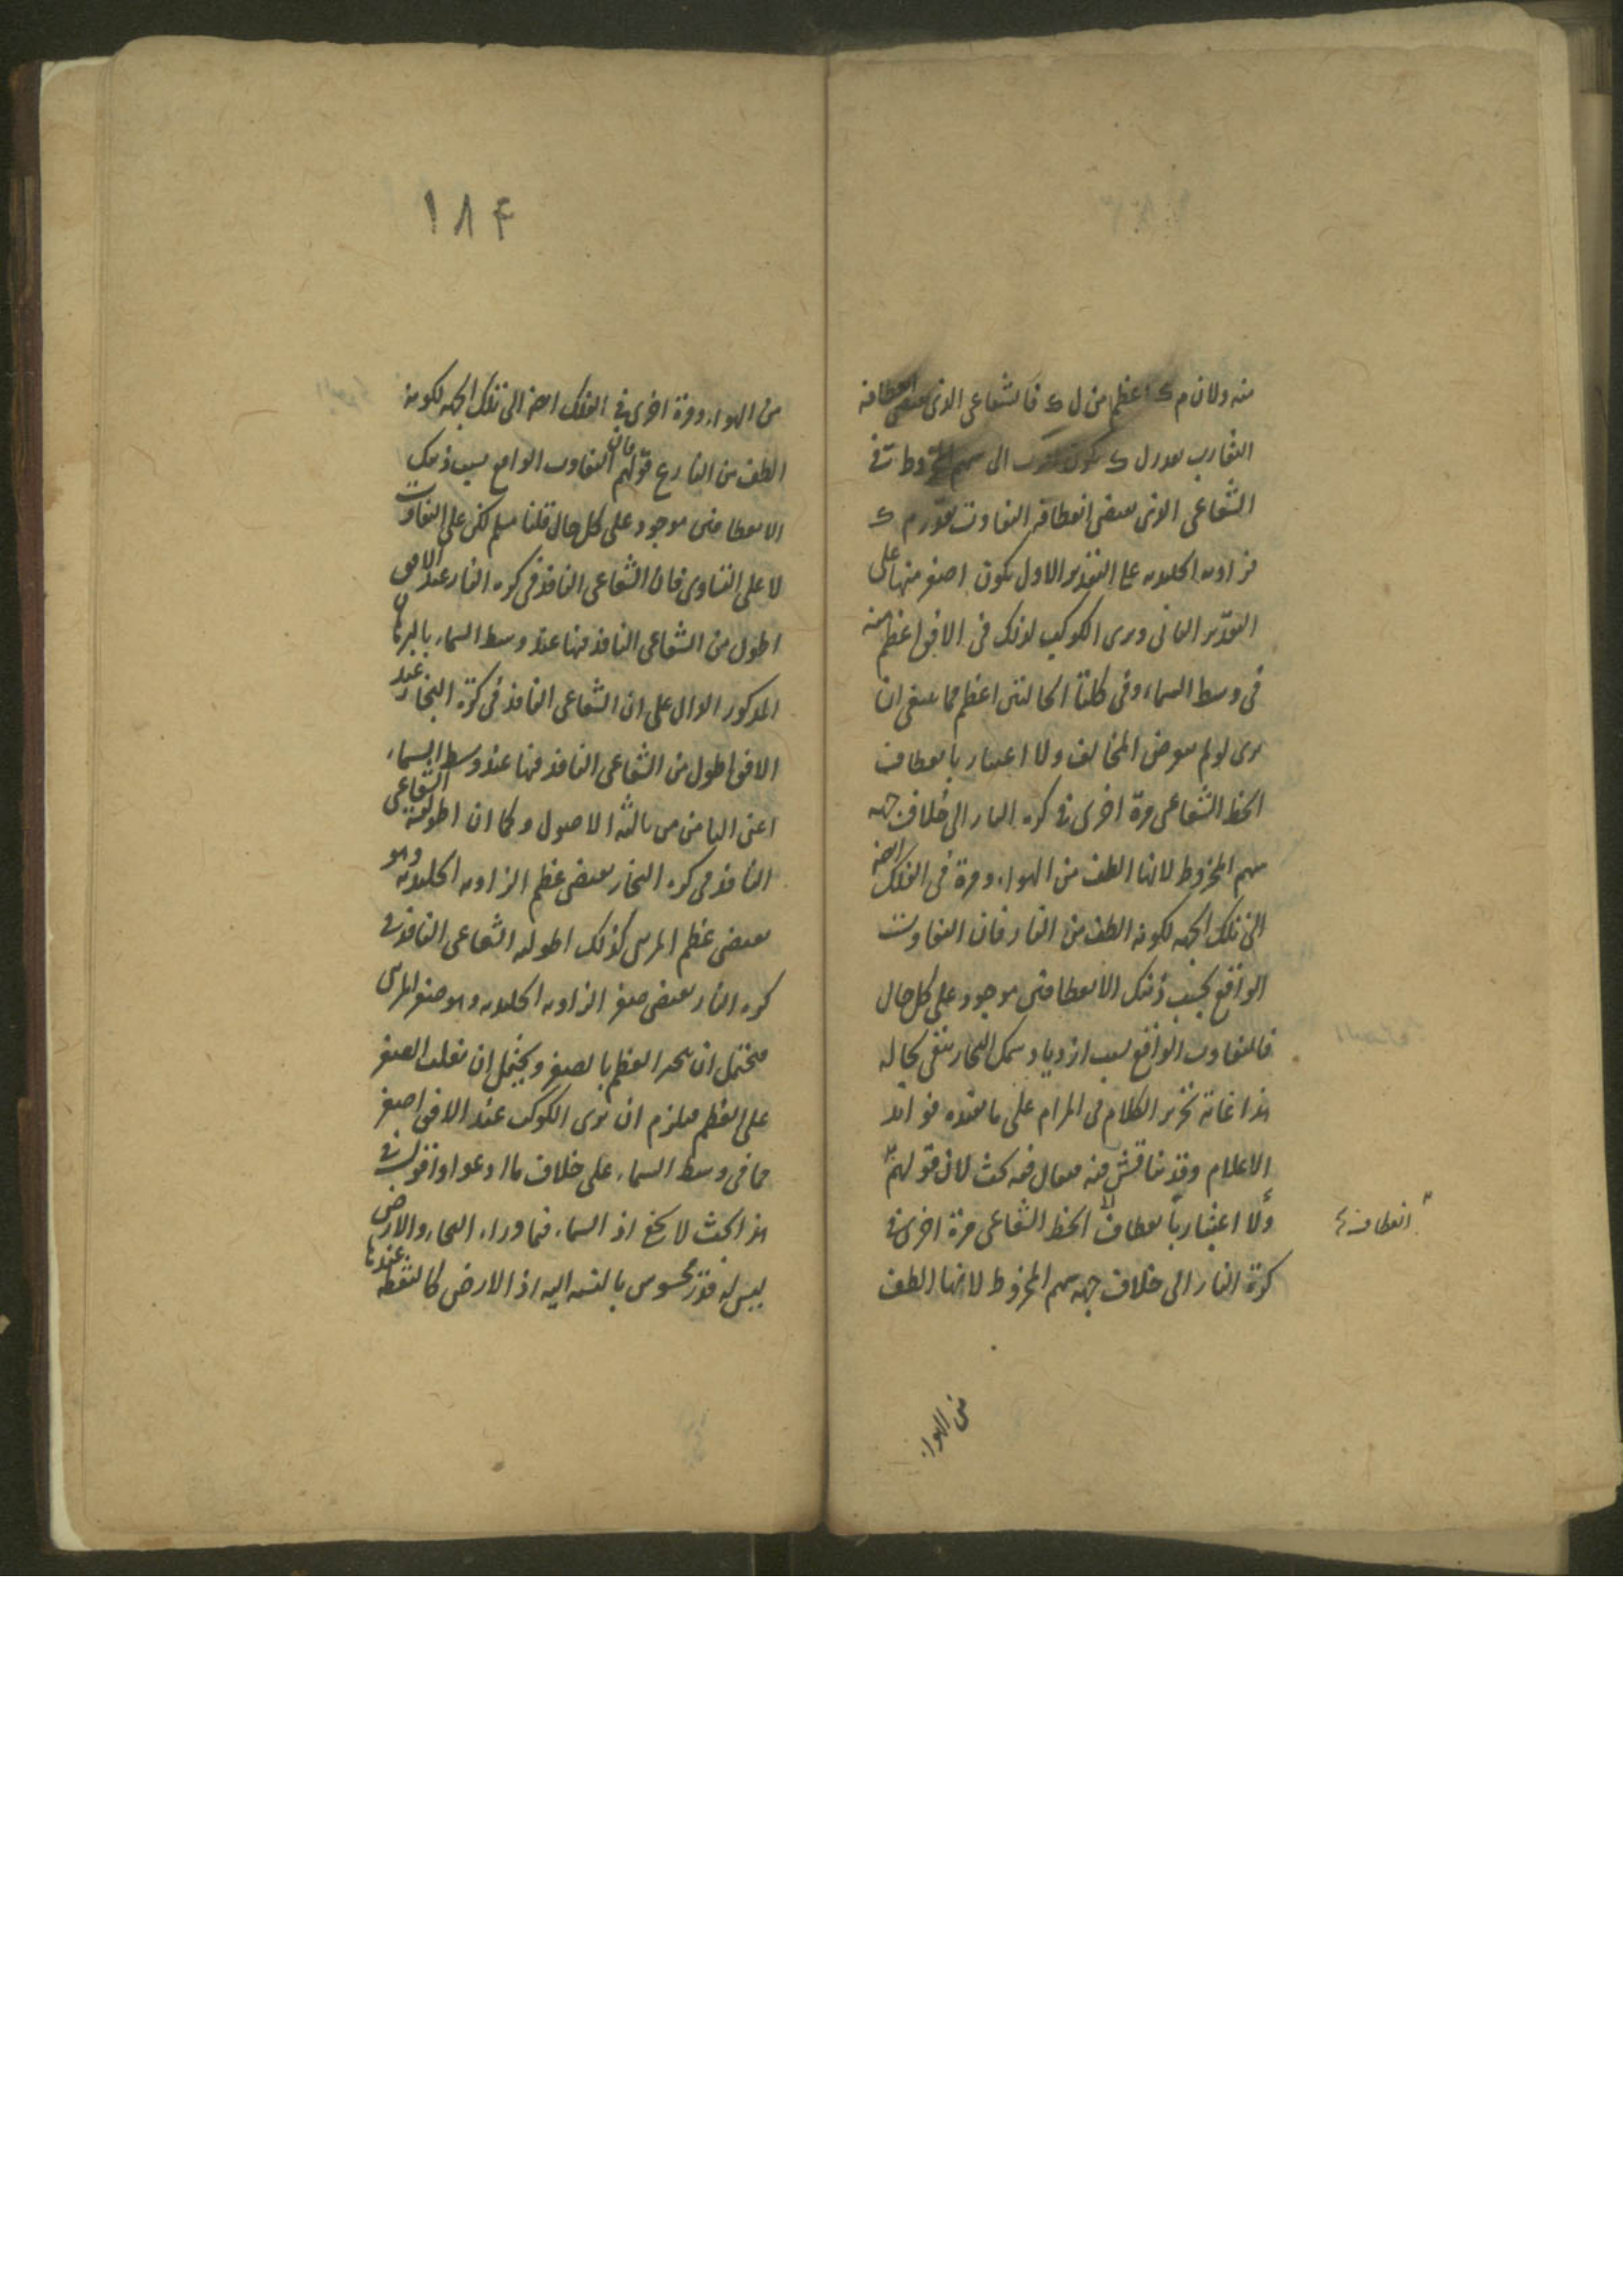 منه ولان م ك اعظم من ل ك فالشعاعى الذى يقتضى انعطافه
التقارب بقدر ل ك يكون اقرب الى سهم المخروط من
الشعاعى الذى يقتضى انعطافه التفاوت بقدر م ك
فزاوية الجليدية على التقدير الاول يكون اصغر منها على
التقدير الثانى ويرى الكوكب لذلك فى الافق اعظم منه
فى وسط السماء وفى كلتا الحالتين اعظم مما ينبغى ان
يرى لو لم يعرض المخالف ولا اعتبار بانعطاف
الخط الشعاعى مرة اخرى فى كرة النار الى خلاف جهة
سهم المخروط لانها الطف من الهواء ومرة فى الفلك ايضه
الى تلك الجهه لكونه الطف من النار فان التفاوت
الواقع بحسب ذينك الانعطافين موجود على كل حال
فالتفاوت الواقع بسبب ازدياد سمك البخار يبقى بحاله
هذا غاية تحرير الكلام فى المرام على ما
الاعلام وقد يناقش فيه فيقال فيه بحث لان قولهم
ولا اعتبار بانعطاف الخط الشعاعى مرة اخرى فى
كرة النار الى خلاف جهه سهم المخروط لانها الطف
انعطاف
من الهواء
١٨۴
من الهواء ومرة اخرى فى الفلك ايضه الى تلك الجهه لكونه
الطف من النار مع قولهم فان التفاوت الواقع بسبب ذينك
الانعطافين موجود على كل حال قلنا مسلم لكن على التفاوت
لا على التساوى فان الشعاعى النافذ فى كره النار عند الافق
اطول من الشعاعى النافذ فيها عند وسط السماء بالبرهان
المذكور الدال على ان الشعاعى النافذ فى كرة البخار عند
الافق اطول من الشعاعى النافذ فيها عند وسط السماء
اعنى الثامن من ثالثه الاصول وكما ان اطولية الشعاعى
النافذ فى كره البخار يقتضى عظم الزاويه الجليديه وهو
يقتضى عظم المرئى كذلك اطوليه الشعاعى النافذ فى
كره النار يقتضى صغر الزاويه الجليديه وهو صغر المرئى
فيحتمل ان ينجبر العظم بالصغر ويحتمل ان يغلب الصغر
على العظم فيلزم ان يرى الكوكب عند الافق اصغر
مما فى وسط السماء على خلاف ما ادعوا واقول فى
هذا البحث لا يخ اذ السماء فما وراء البخار والارض
ليس له قدر محسوس بالنسبه اليه اذ الارض كالنقطة عندها